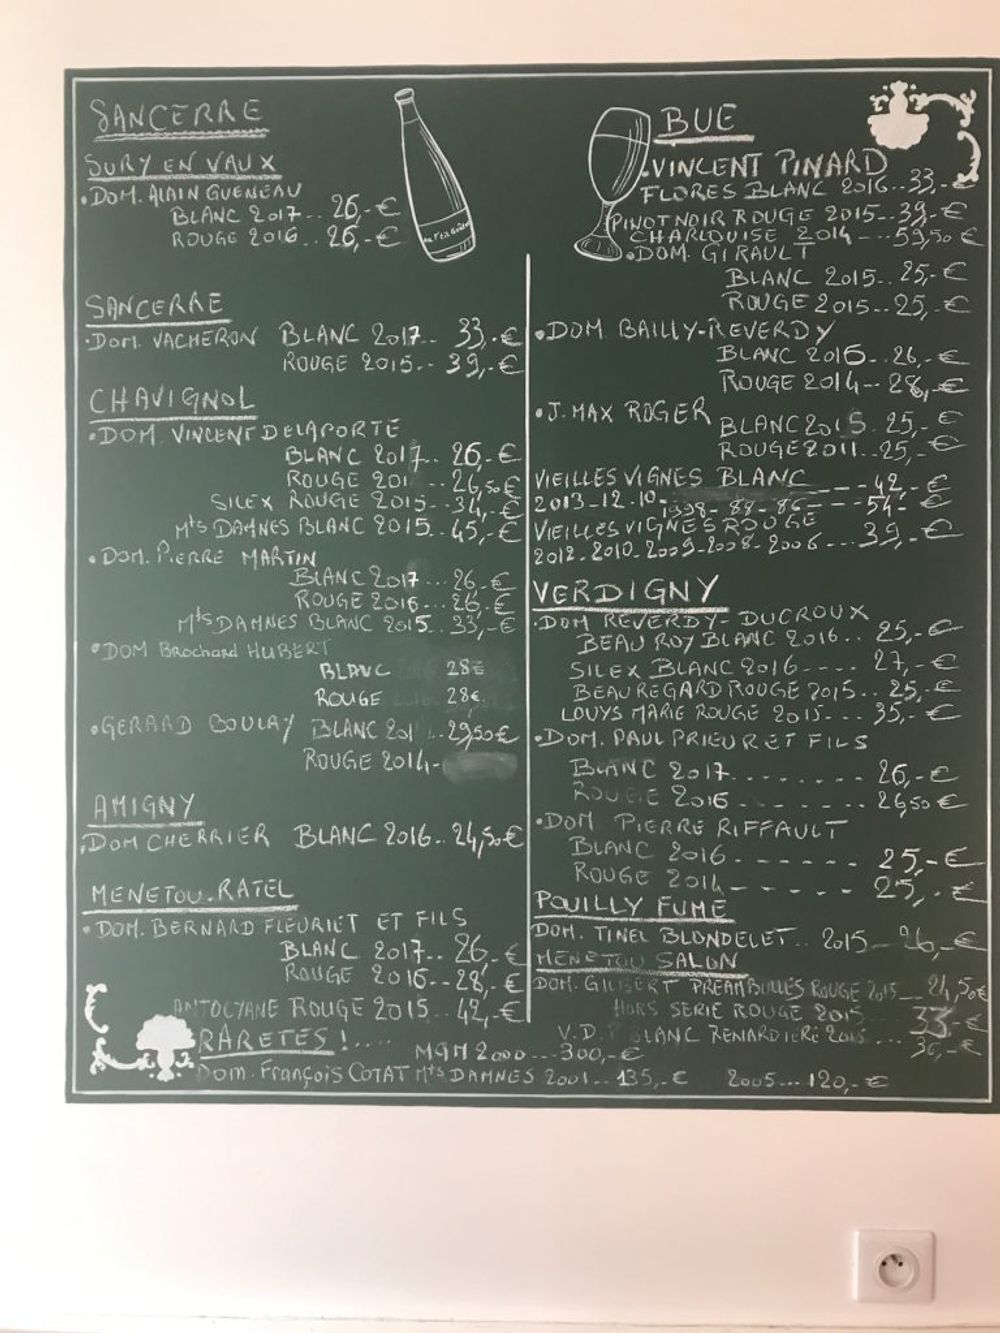 SANCERRE
SURY EN VAUX
• DOM. ALAIN GUENEAU
BLANC 2017.. 26,-€
ROUGE 2016.. 26,-€
SANCERRE
• DOM. VACHERON BLANC 2017.. 33,-€
ROUGE 2015.. 39,-€
CHAVIGNOL
• DOM. VINCENT DELAPORTE
BLANC 2017.. 26,-€
ROUGE 201 .. 26,50€
SILEX ROUGE 2015.. 34,-€
Mts DAMNES BLANC 2015. 45,-€
• DOM. PIERRE MARTIN
BLANC 2017... 26,-€
ROUGE 2016... 26,-€
Mts DAMNES BLANC 2015.. 33,-€
• DOM Brochard HUBERT
BLANC 28€
ROUGE 28€
• GERARD BOULAY BLANC 201 .. 29,50€
ROUGE 2014-
AMIGNY
. DOM CHERRIER BLANC 2016.. 24,50€
MENETOU-RATEL
• DOM. BERNARD FLEURIET ET FILS
BLANC 2017.. 26,-€
ROUGE 2016-- 28,-€
ANTOCYANE ROUGE 2015.. 42,-€
BUE
. VINCENT PINARD
FLORES BLANC 2016.. 33,-€
PINOT NOIR ROUGE 2015-- 39,-€
CHARLOUISE 2014 --- 59,50€
• DOM. GIRAULT
BLANC 2015.. 25,-€
ROUGE 2015-- 25,-€
• DOM BAILLY-REVERDY
BLANC 2016.. 26,-€
ROUGE 2014-- 28,-€
• J. MAX ROGER
BLANC 2015. 25,-€
ROUGE 2011.. 25,-€
VIEILLES VIGNES BLANC ---- 42,-€
2013-12-10- 1998-88-86 --- 54-
VIEILLES VIGNES ROUGE
2012-2010-2009-2008-2006 ... 39,-€
VERDIGNY
• DOM REVERDY-DUCROUX
BEAU ROY BLANC 2016.. 25,-€
SILEX BLANC 2016---- 27,-€
BEAUREGARD ROUGE 2015.. 25,-€
LOUYS MARIE ROUGE 2015... 35,-€
• DOM. PAUL PRIEUR ET FILS
BLANC 2017........ 26,-€
ROUGE 2016 -...... 26,50€
• DOM PIERRE RIFFAULT
BLANC 2016 ------ 25,-€
ROUGE 2014 ------ 25,-€
POUILLY FUME
DOM. TINEL BLONDELET.. 2015 - 26,-€
MENETOU SALON
DOM. GILBERT PREAMBULLES ROUGE 2015 -- 24,50€
HORS SERIE ROUGE 2015 33-€
V.D. BLANC RENARDIERE ... 36,-€
RARETES !....
MGM 2000...300,-€
Dom. François COTAT Mts DAMNES 2001.. 135,-€ 2005...120,-€